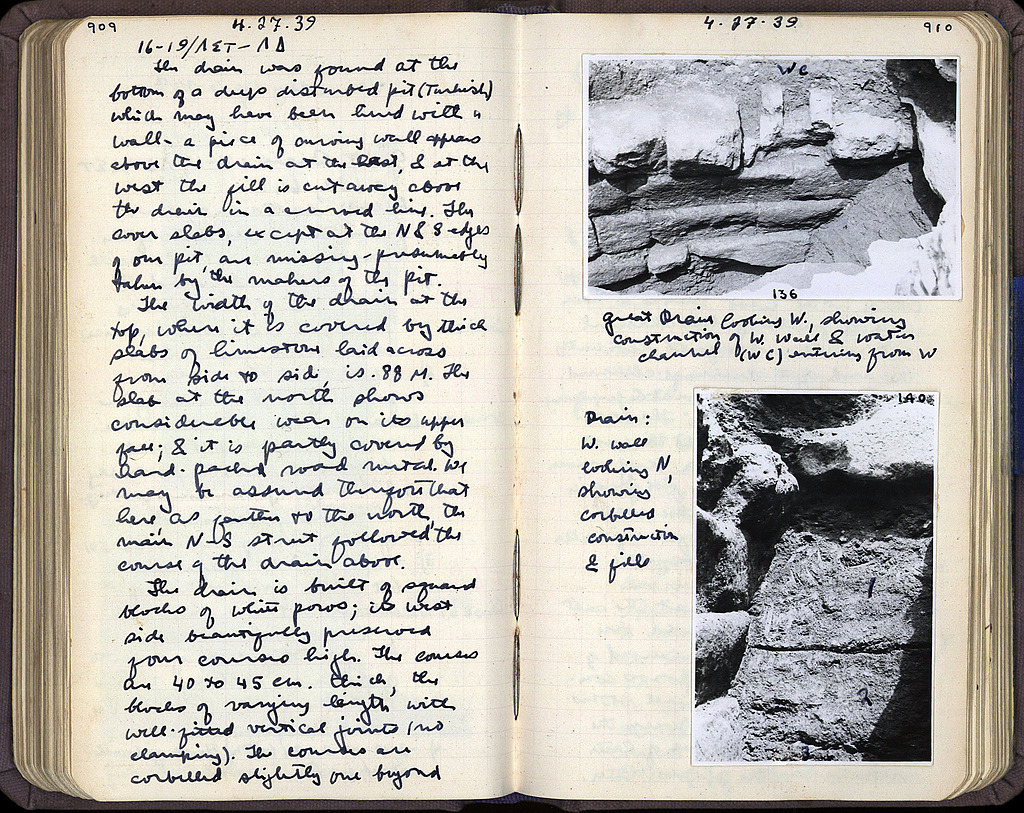 909
4.27.39
16-19/ΛΣΤ-ΛΔ
The drain was found at the
bottom of a deep disturbed pit (Turkish)
which may have been lined with a
wall - a piece of curving wall appears
above the drain at the east, & at the
west the fill is cut away above
the drain in a curved line. The
cover slabs, except at the N & S edges
of our pit, are missing - presumably
taken by the makers of the pit.
The width of the drain at the
top, where it is covered by thick
slabs of limestone laid across
from side to side, is .88 M. The
slab at the north shows
considerable wear on its upper
face; & it is partly covered by
hard-packed road metal. We
may be assured therefore that
here as farther to the north, the
main N-S street followed the
course of the drain above.
The drain is built of squared
blocks of white poros; its west
side beautifully preserved
four courses high. The courses
are 40 to 45 cm. thick, the
blocks of varying length, with
well-fitted vertical joints (no
clamping). The courses are
corbelled slightly one beyond
4.27.39
910
WC
136
Great Drain looking W., showing
construction of W. wall & water
channel (WC) entering from W
140
Drain:
W. wall
looking N,
showing
corbelled
construction
& fills
1
2
3